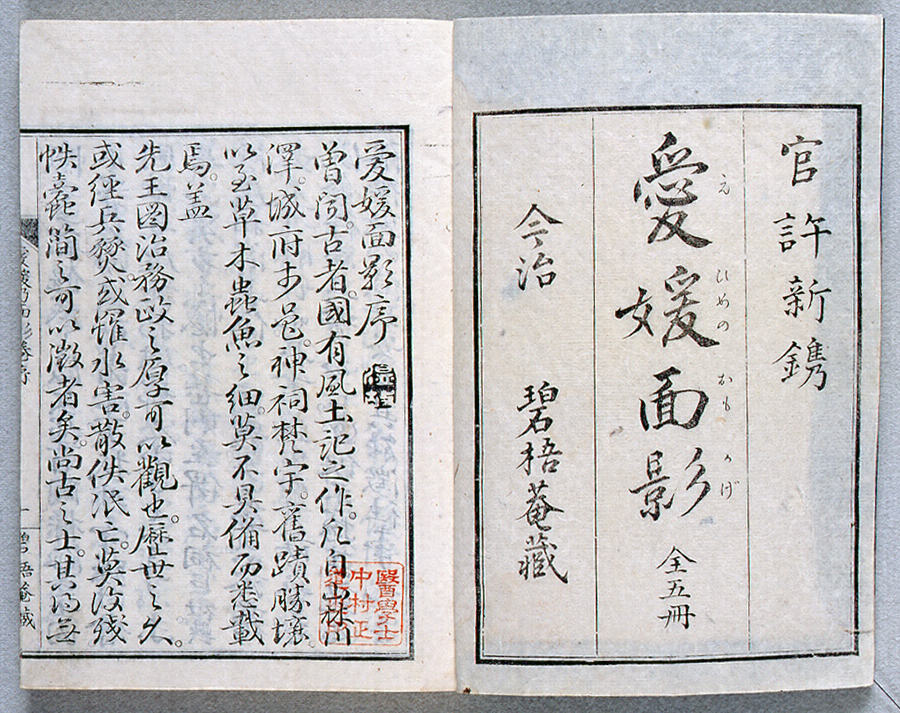 官許新鐫
愛媛面影 全五冊
えひめのおもかげ
今治 碧梧菴藏
愛媛面影序
曽聞。古者。國有風土記之作。凡自山林川
澤。城府市邑。神祠梵宇。舊蹟勝壤。
以至草木蟲魚之細。莫不具備而悉載
焉。蓋
先王圖治務政之厚可以觀也。歷世之久。
或經兵燹。或罹水害。散佚泯亡。莫復殘
帙蠹簡之可以徵者矣。尚古之士。其得無
醫學士
中村正